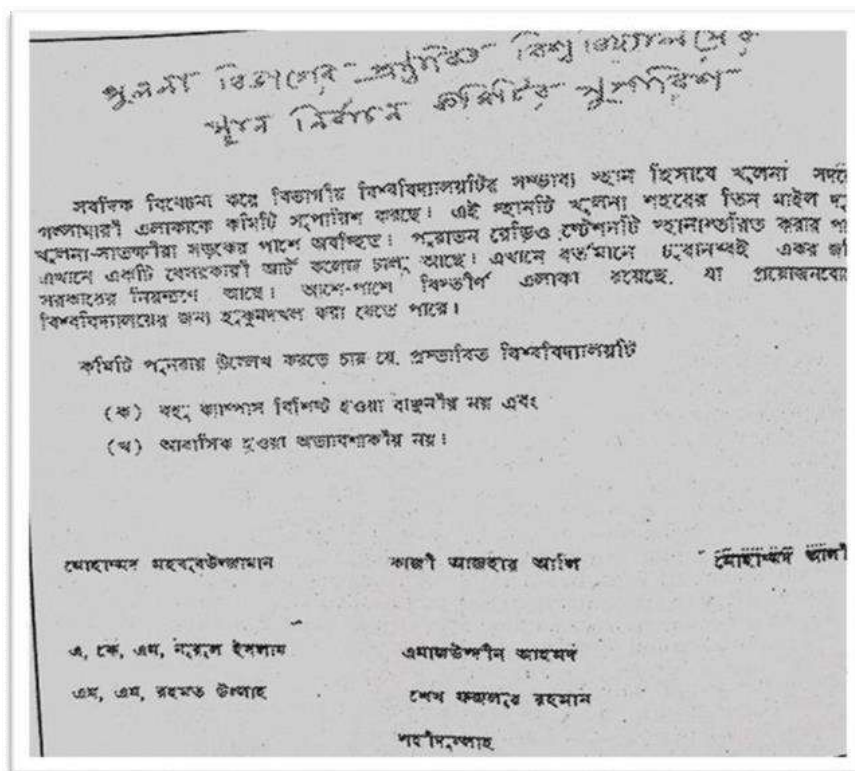 খুলনা বিভাগের প্রস্তাবিত বিশ্ববিদ্যালয়ের
স্থান নির্বাচন কমিটির সুপারিশ
সবদিক বিবেচনা করে বিভাগীয় বিশ্ববিদ্যালয়টির সম্ভাব্য স্থান হিসাবে খুলনা
গল্লামারী এলাকাকে কমিটি সুপারিশ করছে। এই স্থানটি খুলনা শহরের তিন মাইল
খুলনা-সাতক্ষীরা সড়কের পাশে অবস্থিত। পুরাতন রেডিও স্টেশনটি স্থানান্তরিত করার
এখানে একটি বেসরকারী আর্ট কলেজ চালু আছে। এখানে বর্তমানে চুরানব্বই একর
সরকারের নিয়ন্ত্রণে আছে। আশে-পাশে বিস্তীর্ণ এলাকা রয়েছে, যা
বিশ্ববিদ্যালয়ের জন্য হুকুমদখল করা যেতে পারে।
কমিটি পুনরায় উল্লেখ করতে চায় যে, প্রস্তাবিত বিশ্ববিদ্যালয়টি
(ক) বহু ক্যাম্পাস বিশিষ্ট হওয়া বাঞ্ছনীয় নয় এবং
(খ) আবাসিক হওয়া অত্যাবশ্যকীয় নয়।
মোহাম্মদ মহবুবউজ্জামান কাজী আজহার আলি মোহাম্মদ আলী
এ, কে, এম, নূরুল ইসলাম এমাজউদ্দীন আহমদ
এম, এম, রহমত উল্লাহ শেখ ফজলুর রহমান
শহীদুল্লাহ